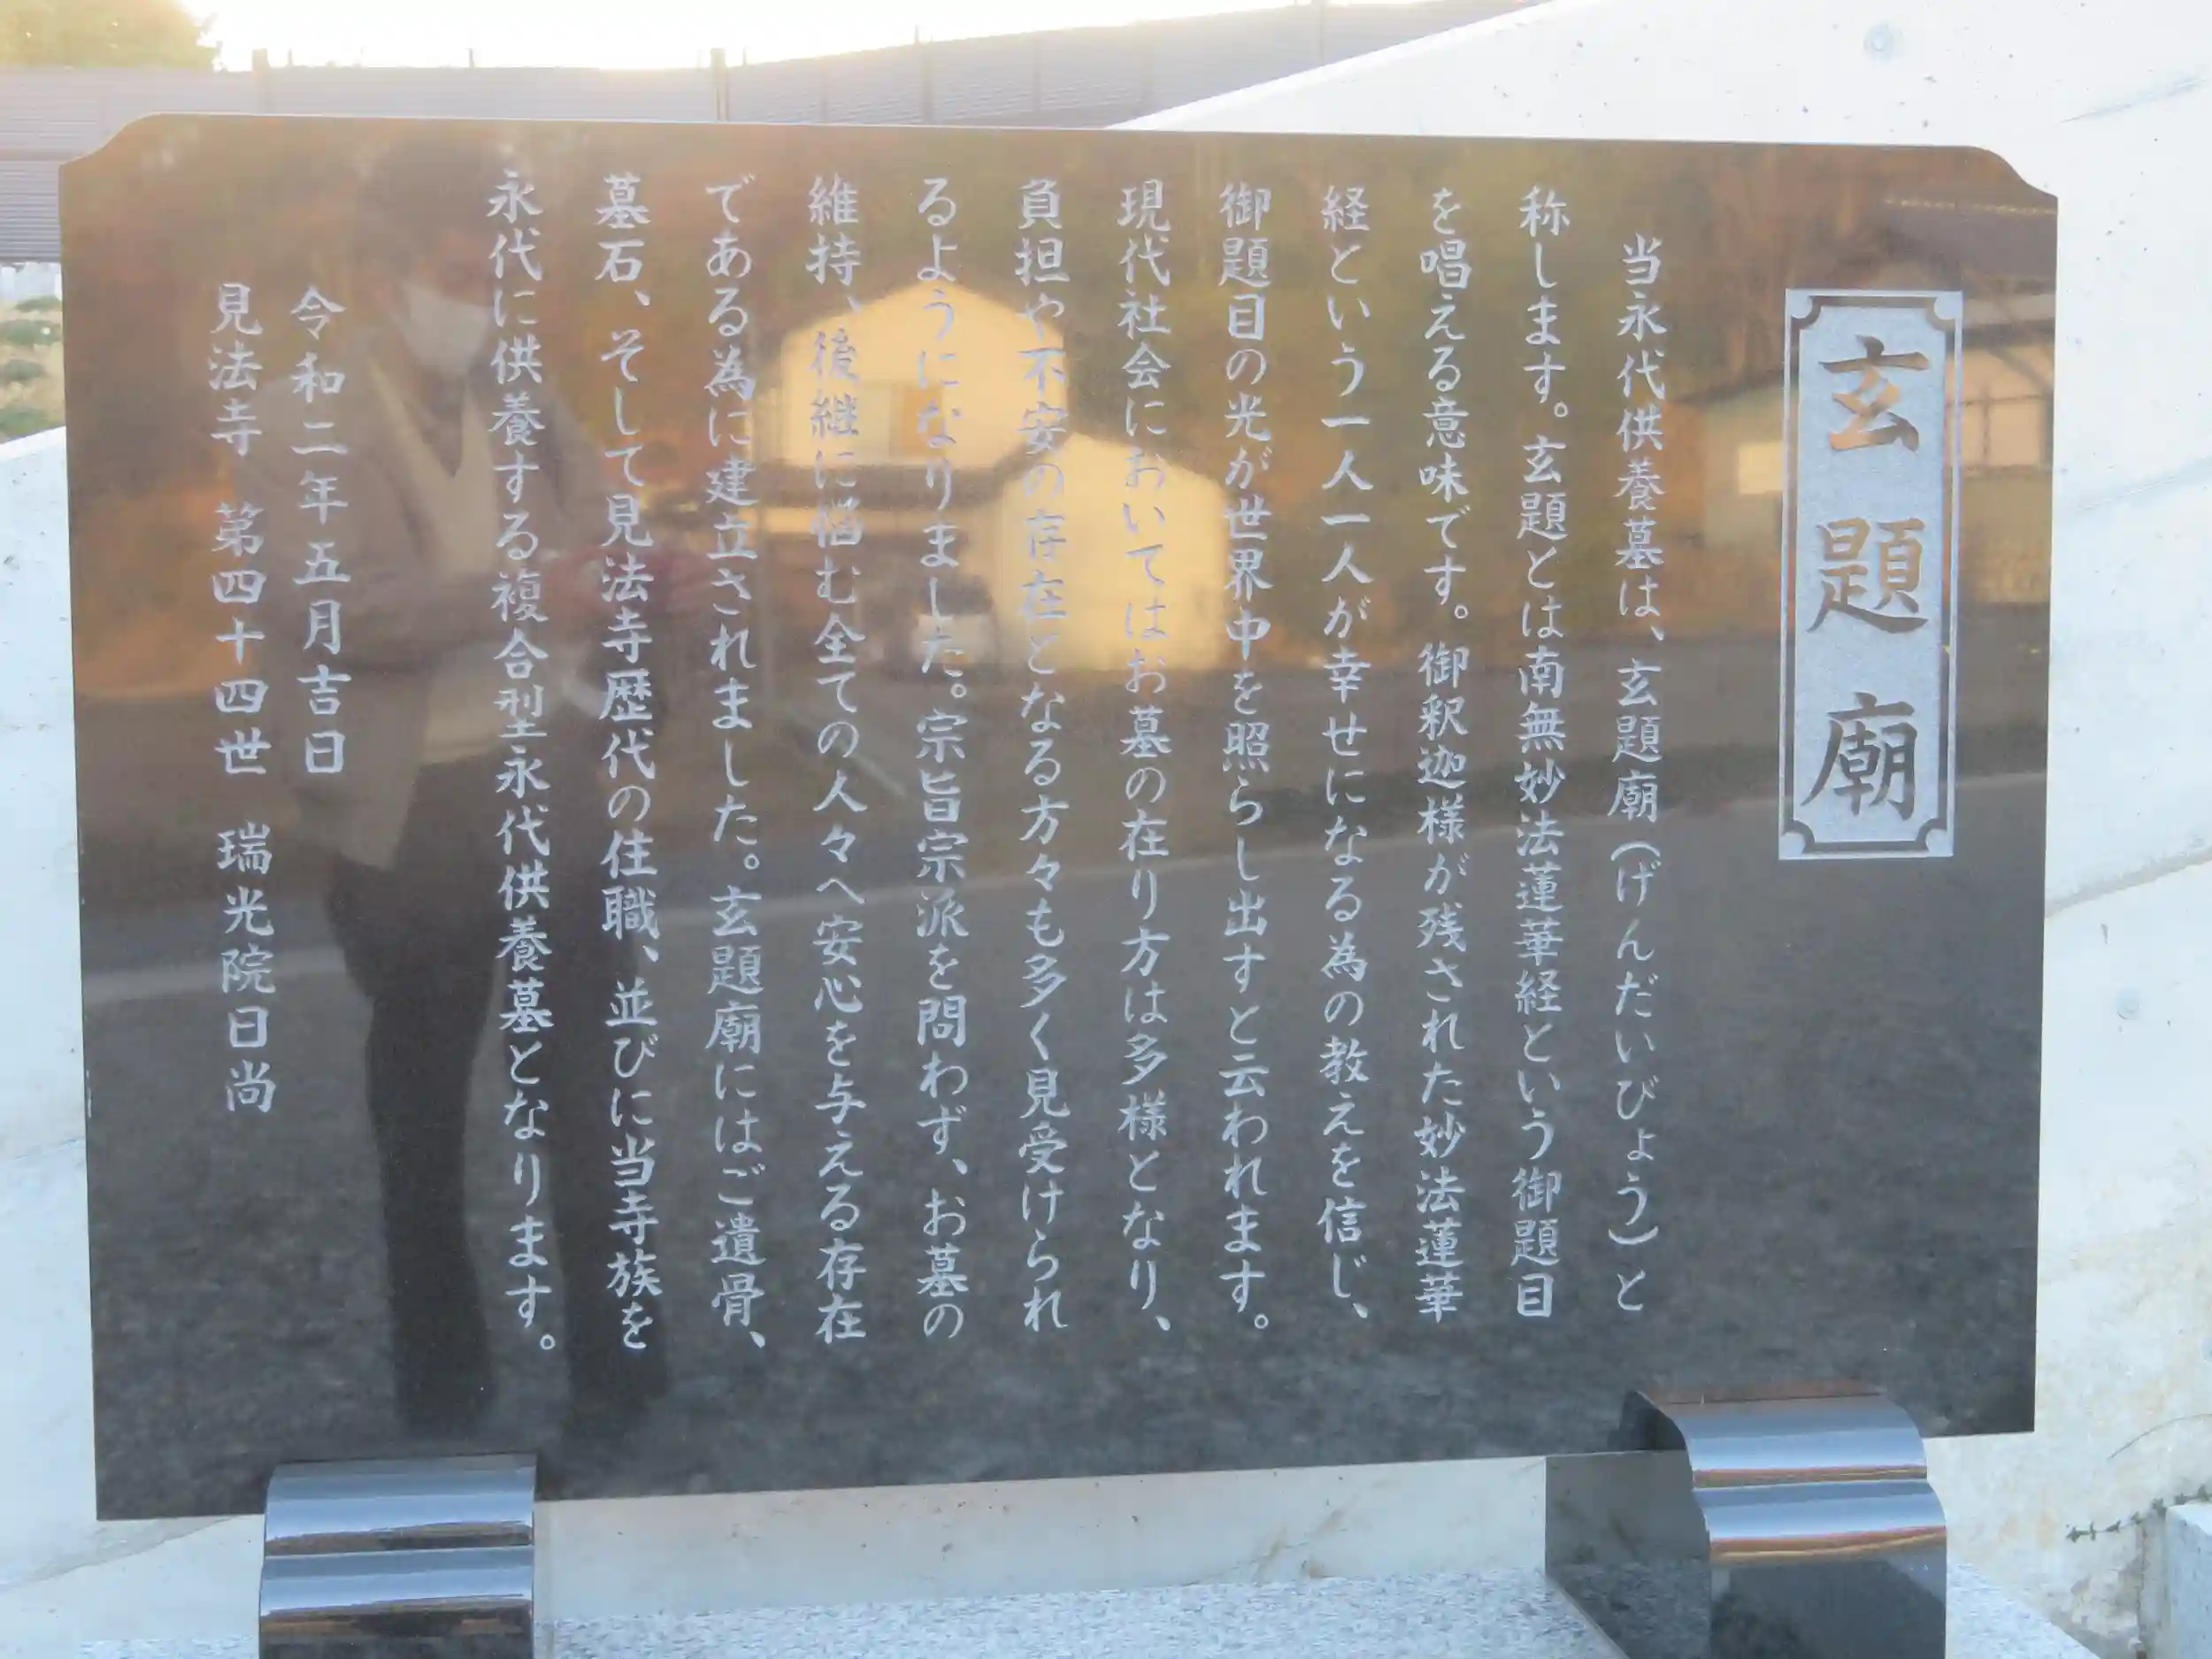 玄題廟
当永代供養墓は、玄題廟(げんだいびょう)と
称します。玄題とは南無妙法蓮華経という御題目
を唱える意味です。御釈迦様が残された妙法蓮華
経という一人一人が幸せになる為の教えを信じ、
御題目の光が世界中を照らし出すと云われます。
現代社会においてはお墓の在り方は多様となり、
負担や不安の存在となる方々も多く見受けられ
るようになりました。宗旨宗派を問わず、お墓の
維持、後継に悩む全ての人々へ安心を与える存在
である為に建立されました。玄題廟にはご遺骨、
墓石、そして見法寺歴代の住職、並びに当寺族を
永代に供養する複合型永代供養墓となります。
令和二年五月吉日
見法寺 第四十四世 瑞光院日尚